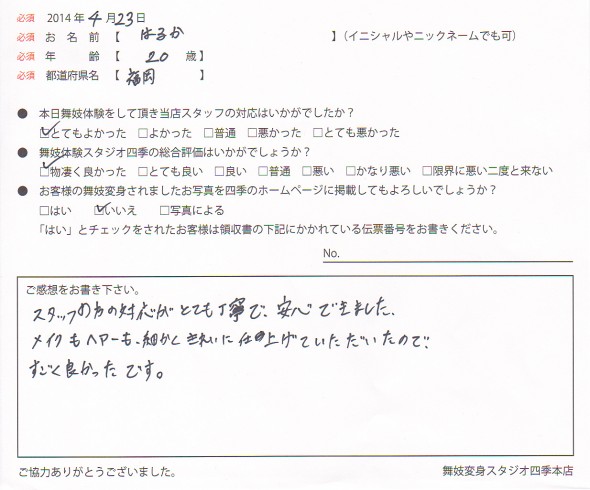 必須 2014年4月23日
必須 お名前【 はるか 】(イニシャルやニックネームでも可)
必須 年齢【 20 歳】
必須 都道府県名【 福岡 】
● 本日舞妓体験をして頂き当店スタッフの対応はいかがでしたか?
☑とてもよかった □よかった □普通 □悪かった □とても悪かった
● 舞妓体験スタジオ四季の総合評価はいかがでしょうか?
☑物凄く良かった □とても良い □良い □普通 □悪い □かなり悪い □限界に悪い二度と来ない
● お客様の舞妓変身されましたお写真を四季のホームページに掲載してもよろしいでしょうか?
□はい ☑いいえ □写真による
「はい」とチェックをされたお客様は領収書の下記にかかれている伝票番号をお書きください。
No.
ご感想をお書き下さい。
スタッフの方の対応がとても丁寧で、安心できました。
メイクもヘアーも、細かくきれいに仕上げていただいたので、
すごく良かったです。
ご協力ありがとうございました。 舞妓変身スタジオ四季本店